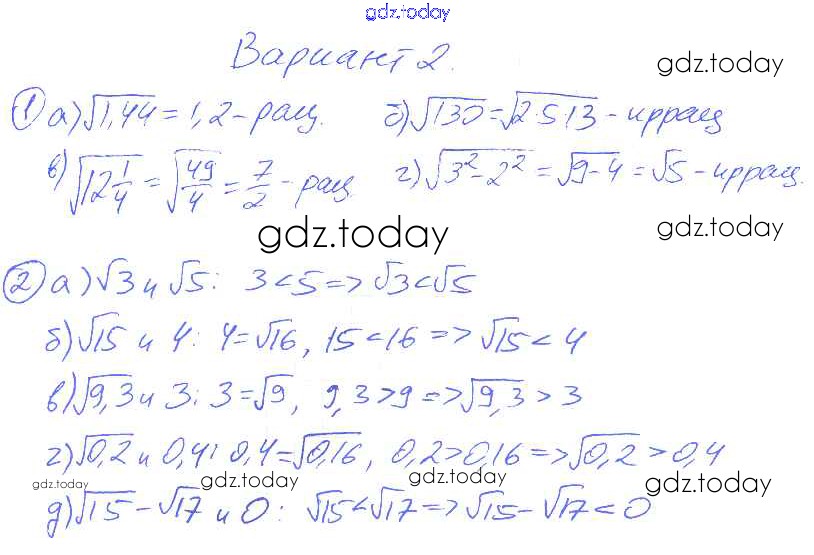 gdz.today
Вариант 2.
gdz.today
① а) √1,44 = 1,2 - рац. б) √130 = √2·5·13 - иррац
в) √12 1/4 = √49/4 = 7/2 - рац. г) √3² - 2² = √9-4 = √5 - иррац.
gdz.today gdz.today
② а) √3 и √5: 3 < 5 => √3 < √5
б) √15 и 4: 4 = √16, 15 < 16 => √15 < 4
в) √9,3 и 3: 3 = √9, 9,3 > 9 => √9,3 > 3
г) √0,2 и 0,4: 0,4 = √0,16, 0,2 > 0,16 => √0,2 > 0,4
gdz.today gdz.today gdz.today gdz.today
д) √15 - √17 и 0: √15 < √17 => √15 - √17 < 0